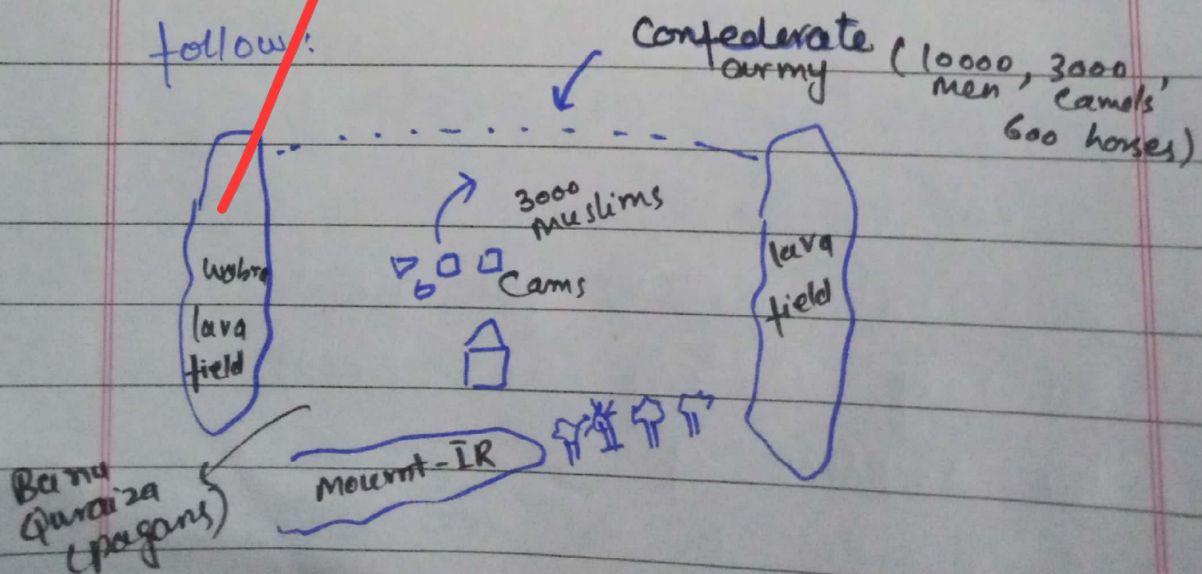 follow:
Confederate
army (10000, 3000,
men camels
600 horses)
3000
muslims
Cams
lava
field
lava
field
Mount-IR
Banu
Quraiza
(pagans)